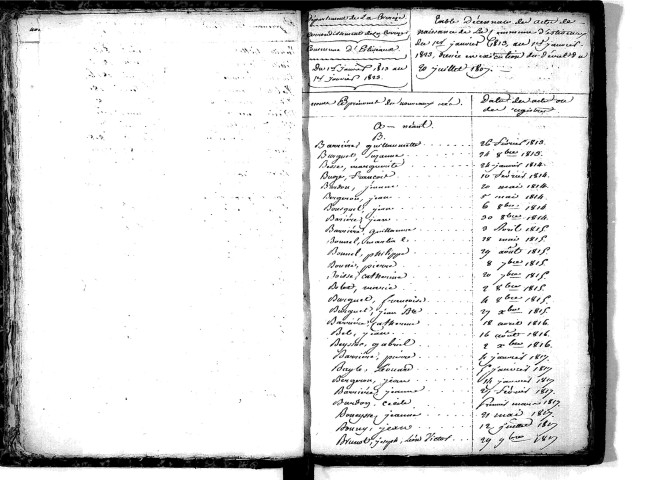 Département de La Corrèze
Commune d'
Du 1er janvier 1813 au
1er janvier 1823.
Table Décennale des actes de
naissance de la commune d'
du 1er janvier 1813, au 1er janvier
1823, dressée en exécution du décret du
20 juillet 1807.
noms & prénoms des nouveaux nés.
Dates des actes ou
des registres
A — néant.
B.
Barrière, guillaumette 26 février 1813.
Burguet, Suzanne 24 8bre 1813.
Besse, marguerite 24 janvier 1814.
Buge, françoise 10 février 1814.
jeanne 20 mai 1814.
Bergeron, jean mai 1814.
Bousquet, jean 6 8bre 1814
Barière, jean 30 8bre 1814.
Barrière, guillaumme 3 Avril 1815.
Bonnel, martial 28 mai 1815.
Bonnel, philippe 29 août 1815.
pierre 8 7bre 1815.
catherine 20 7bre 1815.
marie 2 8bre 1815.
Burguet, françoise 4 8bre 1815.
Burguet, jean Bte 27 xbre 1815.
Barrière, Catherine 18 avril 1816.
jean 16 août 1816.
gabriel 2 xbre 1816.
Barrière, pierre janvier 1817.
Bayle, Léonard janvier 1817.
Bergeron, jean 14 janvier 1817
Barrière, jeanne 27 février 1817.
Bardon, cécile mars 1817
jeanne 21 mai 1817.
Bonny, jean 12 juillet 1817
Brunot, joseph, Léon Victor 29 9bre 1817